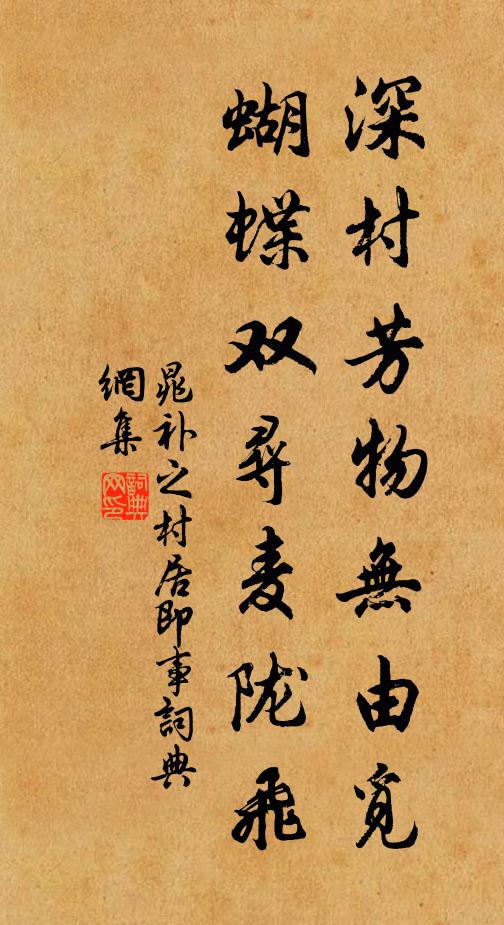 深村芳物無由覓
蝴蝶双尋麦陇飛
晁补之村居即事詞典
網集
詞典
网印